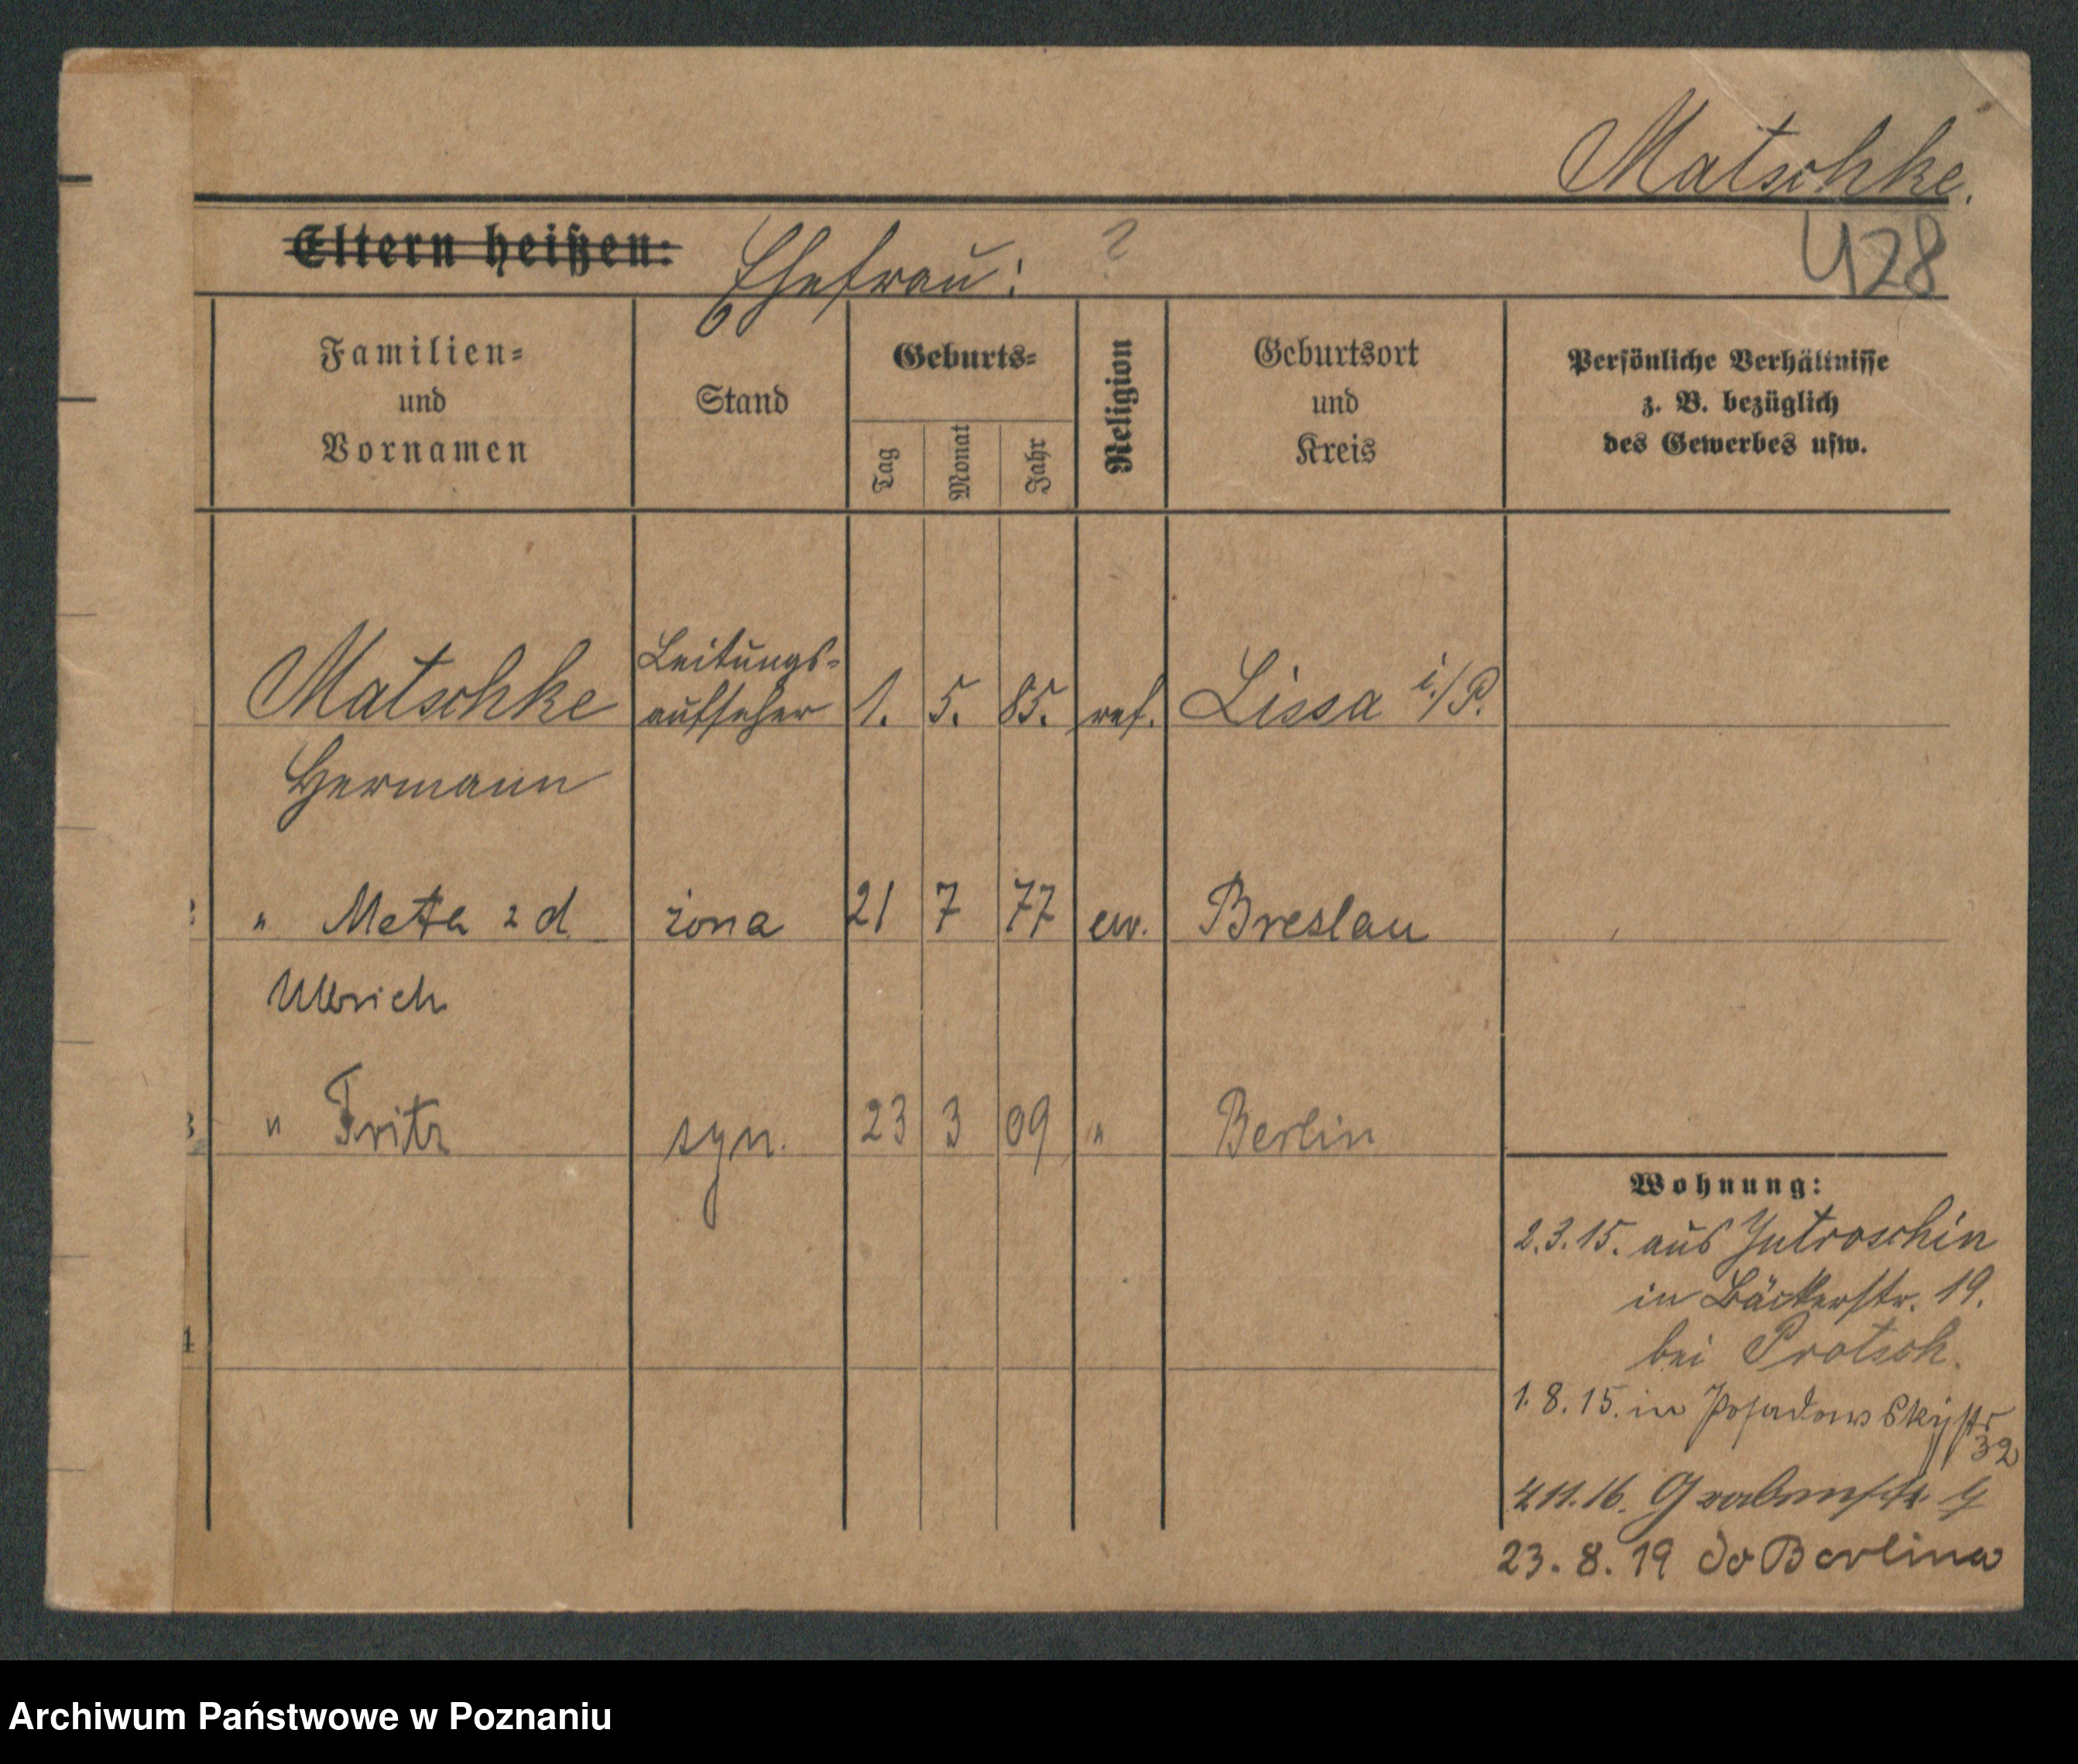 Matschke.
428
Eltern heißen: Ehefrau: ?
Familien- und Vornamen
Stand
Geburts-
Tag
Monat
Jahr
Religion
Geburtsort und Kreis
Persönliche Verhältnisse
z. B. bezüglich
des Gewerbes usw.
Leitungs-
Matschke aufseher 1. 5. 85. ref. Lissa i./P.
Hermann
" Meta z d żona 21 7 77 ew. Breslau
Ulbrich
3 " Fritz syn. 23 3 09 " Berlin
4
Wohnung:
2.3.15. aus Jutroschin
in Bäckerstr. 19.
bei Protsch.
1.8.15. in Posadowskystr
32
11.16.
23.8.19 do Berlina
Archiwum Państwowe w Poznaniu